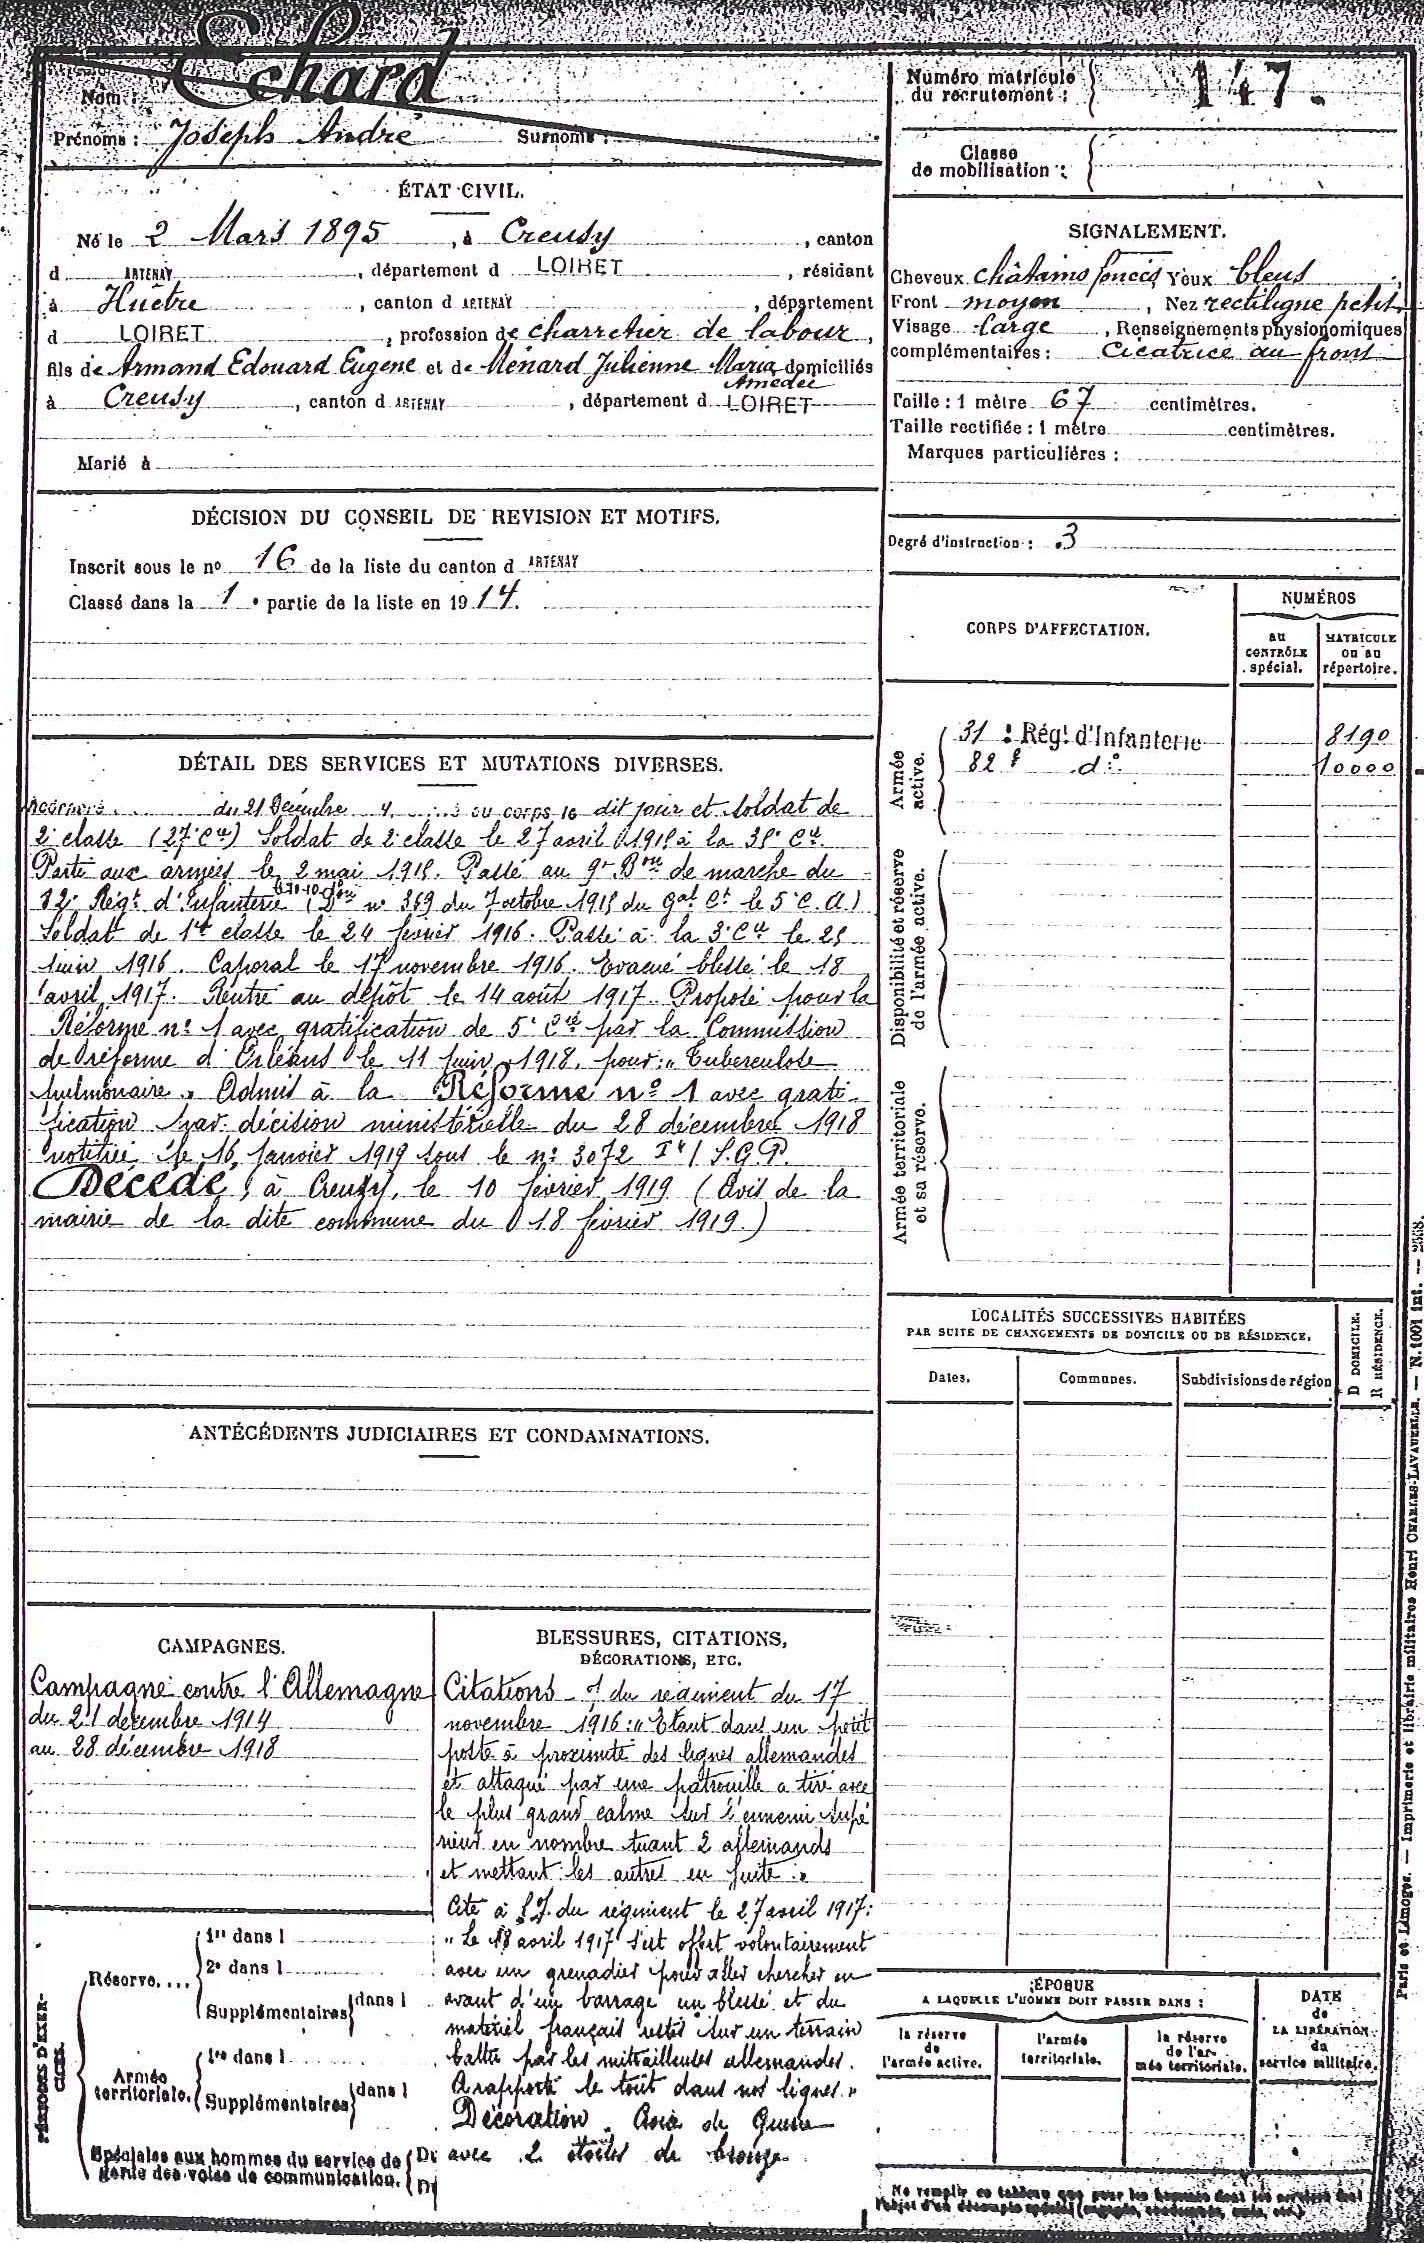 Nom : Echard
Prénoms : Joseph André Surnoms :
Numéro matricule
du recrutement : 147.
Classe
de mobilisation :
ÉTAT CIVIL.
Né le 2 Mars 1895, à Creusy, canton
d ARTENAY, département d LOIRET, résidant
à Huêtre, canton d ARTENAY, département
d LOIRET, profession de charretier de labour,
fils de Armand Edouard Eugene et de Ménard Julienne Maria domiciliés
Amedée
à Creusy, canton d ARTENAY, département d LOIRET
Marié à
SIGNALEMENT.
Cheveux châtains foncés Yeux bleus
Front moyen, Nez rectiligne petit
Visage large, Renseignements physionomiques
complémentaires : Cicatrice au front
Taille : 1 mètre 67 centimètres.
Taille rectifiée : 1 mètre centimètres.
Marques particulières :
Degré d'instruction : 3
DÉCISION DU CONSEIL DE REVISION ET MOTIFS.
Inscrit sous le no 16 de la liste du canton d ARTENAY
Classé dans la 1e partie de la liste en 1914.
CORPS D'AFFECTATION.
NUMÉROS
au
CONTRÔLE
spécial.
MATRICULE
ou au
répertoire.
Armée
active.
31e Régt d'Infanterie 8190
82e do 10000
Disponibilité et réserve
de l'armée active.
Armée territoriale
et sa réserve.
DÉTAIL DES SERVICES ET MUTATIONS DIVERSES.
du 21 Décembre au corps le dit jour et soldat de
2e classe (27e Cie) Soldat de 2e classe le 27 avril 1915 à la 35e Cie.
Parti aux armées le 2 mai 1915. Passé au 9e Bon de marche du
82e Régt d'Infanterie (Don no 369 du 7 octobre 1915 du Gal Ct le 5e C.A)
Soldat de 1re classe le 24 février 1916. Passé à la 3e Cie le 25
juin 1916. Caporal le 17 novembre 1916. Evacué blessé le 18
avril 1917. Rentré au dépôt le 14 août 1917. Proposé pour la
Réforme no 1 avec gratification de 5e Cie par la Commission
de réforme d'Orléans le 11 juin 1918, pour : "Tuberculose
pulmonaire". Admis à la Réforme no 1 avec grati-
fication par décision ministérielle du 28 décembre 1918
notifiée le 16 janvier 1919 sous le no 3072 I4/S.G.P.
Décédé, à Creuzy, le 10 février 1919 (Avis de la
mairie de la dite commune du 18 février 1919.)
LOCALITÉS SUCCESSIVES HABITÉES
PAR SUITE DE CHANGEMENTS DE DOMICILE OU DE RÉSIDENCE.
Dates.
Communes.
Subdivisions de région
D DOMICILE.
R RÉSIDENCE.
ANTÉCÉDENTS JUDICIAIRES ET CONDAMNATIONS.
CAMPAGNES.
Campagne contre l'Allemagne
du 21 décembre 1914
au 28 décembre 1918
BLESSURES, CITATIONS,
DÉCORATIONS, ETC.
Citations - du régiment du 17
novembre 1916 : "Etant dans un petit
poste à proximité des lignes allemandes
et attaqué par une patrouille a tiré avec
le plus grand calme sur l'ennemi supé
rieur en nombre tuant 2 allemands
et mettant les autres en fuite."
Cité à l'O. du régiment le 27 avril 1917 :
"Le 18 avril 1917 s'est offert volontairement
avec un grenadier pour aller chercher en
avant d'un barrage un blessé et du
matériel français restés sur un terrain
battu par les mitrailleuses allemandes.
A rapporté le tout dans nos lignes."
Décoration. Croix de Guerre
avec 2 étoiles de bronze.
PÉRIODES D'EXER-
CICES.
Réserve....
1re dans l
2e dans l
Supplémentaires dans l
Armée
territoriale.
1re dans l
Supplémentaires dans l
Spéciales aux hommes du service de
garde des voies de communication.
ÉPOQUE
A LAQUELLE L'HOMME DOIT PASSER DANS :
la réserve
de
l'armée active.
l'armée
territoriale.
la réserve
de l'ar-
mée territoriale.
DATE
de
LA LIBÉRATION
du
service militaire.
Ne remplir ce tableau que pour les hommes dont les services font
l'objet d'un décompte spécial
Paris et Limoges. — Imprimerie et librairie militaires Henri CHARLES-LAVAUZELLE. — N. 1001 int. — 2538.